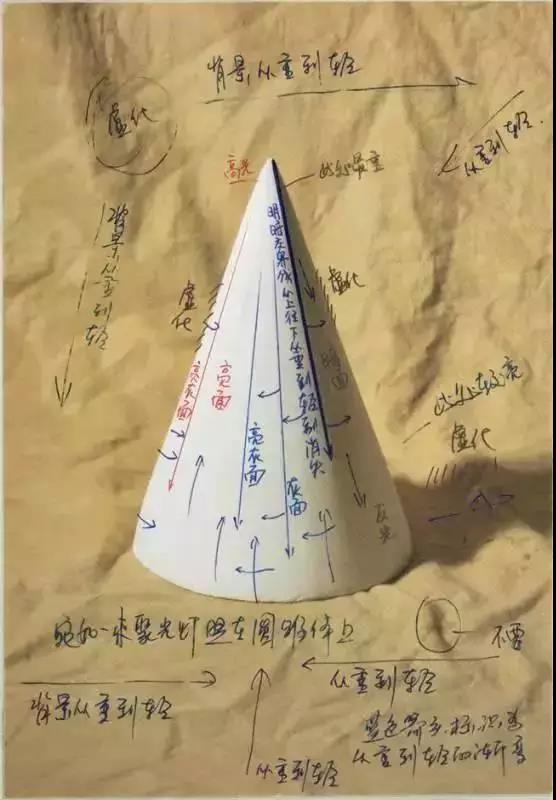 背景从重到轻
虚化
从重到轻.
高光
此处最重
背景从重到轻
明暗交界线从上往下从重到轻到消失
虚化
虚化
亮灰面
亮面
暗面
此处较亮
虚化
亮灰面
灰面
反光
宛如一束聚光灯照在圆锥体上
不要
背景从重到轻
从重到轻
从重到轻
蓝色箭头标识为
从重到轻的渐变